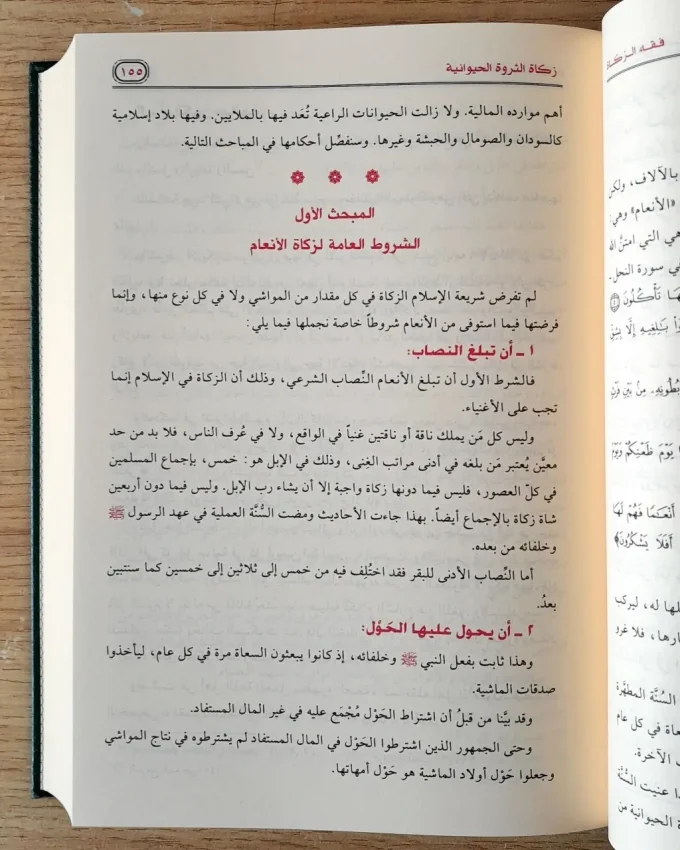 زكاة الثروة الحيوانية
١٥٥
أهم موارده المالية. ولا زالت الحيوانات الراعية تُعَد فيها بالملايين. وفيها بلاد إسلامية
كالسودان والصومال والحبشة وغيرها. وسنفصِّل أحكامها في المباحث التالية.
المبحث الأول
الشروط العامة لزكاة الأنعام
لم تفرض شريعة الإسلام الزكاة في كل مقدار من المواشي ولا في كل نوع منها، وإنما
فرضتها فيما استوفى من الأنعام شروطاً خاصة نجملها فيما يلي:
١ ـ أن تبلغ النصاب:
فالشرط الأول أن تبلغ الأنعام النِّصاب الشرعي، وذلك أن الزكاة في الإسلام إنما
تجب على الأغنياء.
وليس كل مَن يملك ناقة أو ناقتين غنياً في الواقع، ولا في عُرف الناس، فلا بد من حد
معيَّن يُعتبر مَن بلغه في أدنى مراتب الغِنى، وذلك في الإبل هو: خمس، بإجماع المسلمين
في كلّ العصور، فليس فيما دونها زكاة واجبة إلا أن يشاء رب الإبل. وليس فيما دون أربعين
شاة زكاة بالإجماع أيضاً. بهذا جاءت الأحاديث ومضت السُّنَّة العملية في عهد الرسول ﷺ
وخلفائه من بعده.
أما النِّصاب الأدنى للبقر فقد اختُلِف فيه من خمس إلى ثلاثين إلى خمسين كما سنتبين
بعدُ.
٢ ـ أن يحول عليها الحَوْل:
وهذا ثابت بفعل النبي ﷺ وخلفائه، إذ كانوا يبعثون السعاة مرة في كل عام، ليأخذوا
صدقات الماشية.
وقد بيَّنا من قبلُ أن اشتراط الحَوْل مُجْمَع عليه في غير المال المستفاد.
وحتى الجمهور الذين اشترطوا الحَوْل في المال المستفاد لم يشترطوه في نتاج المواشي
وجعلوا حَوْل أولاد الماشية هو حَوْل أمهاتها.
فقه الزكاة
بالآلاف، ولكن
«الأنعام» وهي:
هي التي امتنَّ الله
في سورة النحل.
تَأْكُلُونَ
بُطُونِهِ، مِنْ بَيْنِ فَرْثٍ
يَوْمَ ظَعْنِكُمْ وَيَوْمَ
أَنْعَامًا فَهُمْ لَهَا
أَفَلَا يَشْكُرُونَ﴾
لها له، ليركب
السُّنَّة المطهَّرة
في كل عام
الآخرة.
عنيت السُّنَّة
الحيوانية من